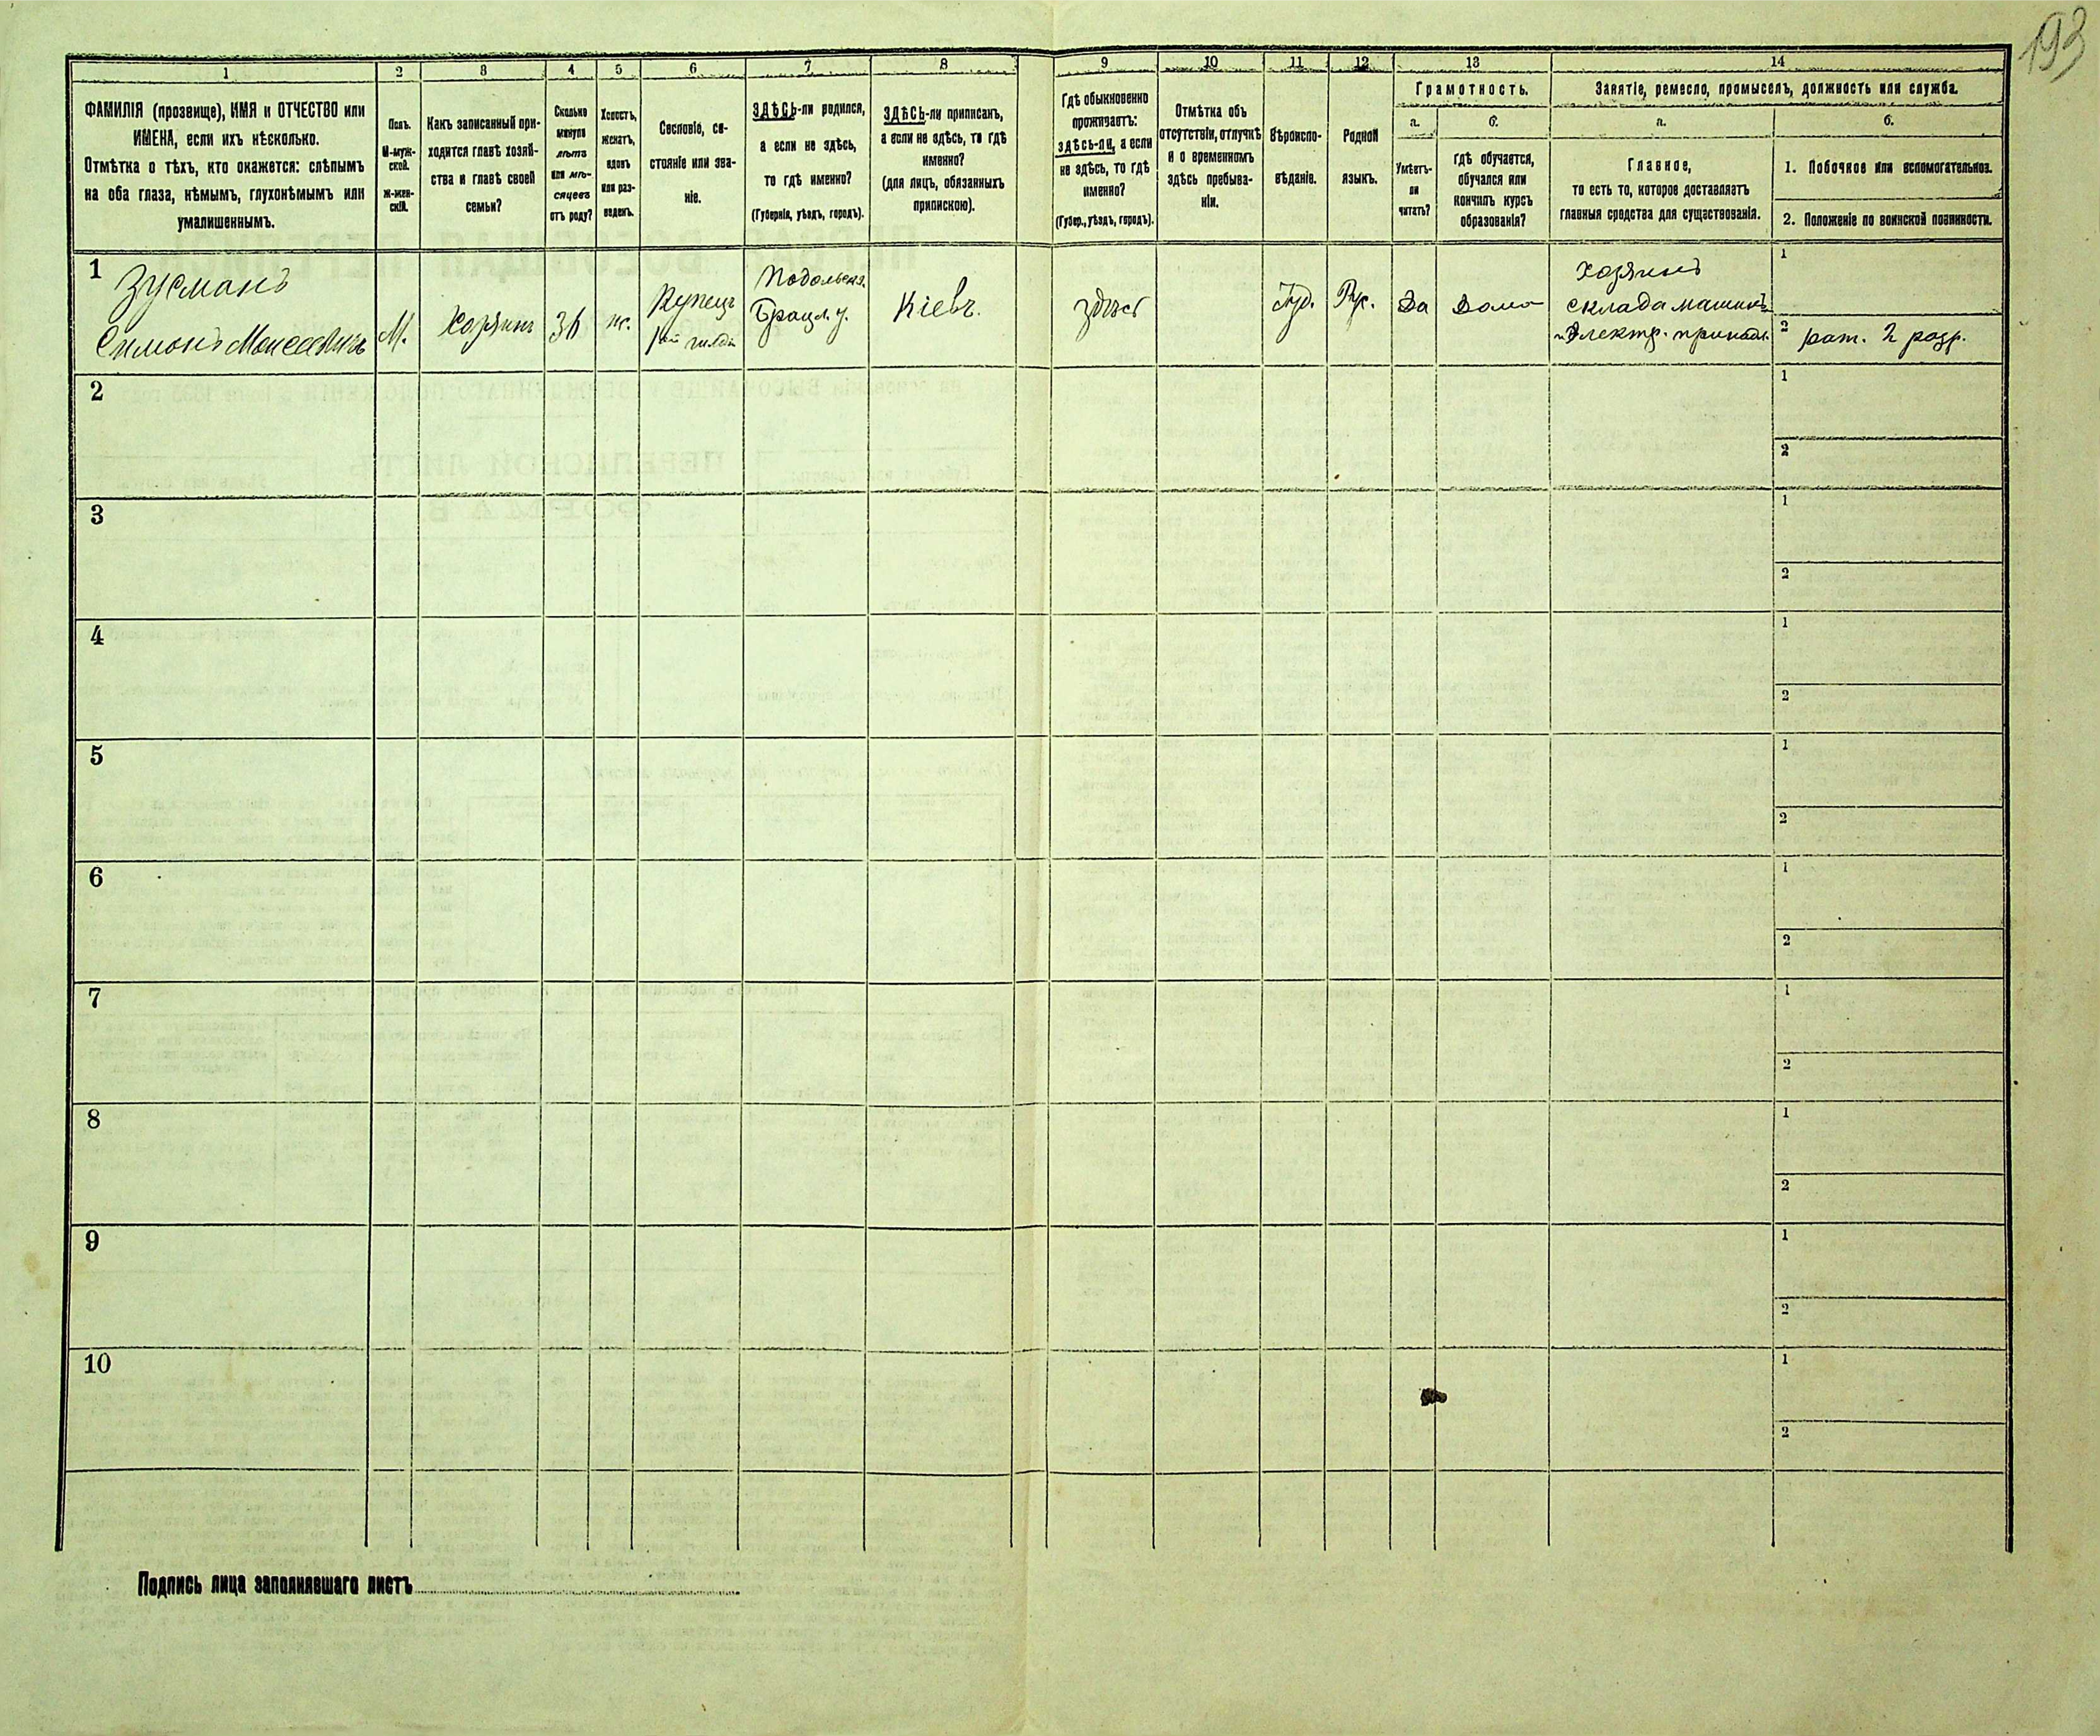 193
1
2
3
4
5
6
7
8
9
10
11
12
13
14
ФАМИЛІЯ (прозвище), ИМЯ и ОТЧЕСТВО или
ИМЕНА, если ихъ нѣсколько.
Отмѣтка о тѣхъ, кто окажется: слѣпымъ
на оба глаза, нѣмымъ, глухонѣмымъ или
умалишеннымъ.
Полъ.
М-муж-
ской.
Ж-жен-
скій.
Какъ записанный при-
ходится главѣ хозяй-
ства и главѣ своей
семьи?
Сколько
минуло
лѣтъ
или мѣ-
сяцевъ
отъ роду?
Холостъ,
женатъ,
вдовъ
или раз-
веденъ.
Сословіе, со-
стояніе или зва-
ніе.
ЗДѢСЬ-ли родился,
а если не здѣсь,
то гдѣ именно?
(Губернія, уѣздъ, городъ).
ЗДѢСЬ-ли приписанъ,
а если не здѣсь, то гдѣ
именно?
(для лицъ, обязанныхъ
припискою).
Гдѣ обыкновенно
проживаетъ:
здѣсь-ли, а если
не здѣсь, то гдѣ
именно?
(Губер., уѣздъ, городъ).
Отмѣтка объ
отсутствіи, отлучкѣ
и о временномъ
здѣсь пребыва-
ніи.
Вѣроиспо-
вѣданіе.
Родной
языкъ.
Грамотность.
а.
Умѣетъ-
ли
читать?
б.
гдѣ обучается,
обучался или
кончилъ курсъ
образованія?
Занятіе, ремесло, промыселъ, должность или служба.
а.
Главное,
то есть то, которое доставляетъ
главныя средства для существованія.
б.
1. Побочное или вспомогательное.
2. Положеніе по воинской повинности.
1
Зусманъ
Симонъ Моисеевичъ
М.
Хозяинъ
36
ж.
Купецъ
1ой гилдіи
Подольск.
Брацл. у.
Кіевъ.
здѣсь
Іуд.
Рус.
Да
Дома
Хозяинъ
склада машинъ
и Электр. принадл.
1
2 рат. 2 разр.
2
1
2
3
1
2
4
1
2
5
1
2
6
1
2
7
1
2
8
1
2
9
1
2
10
1
2
Подпись лица заполнявшаго листъ